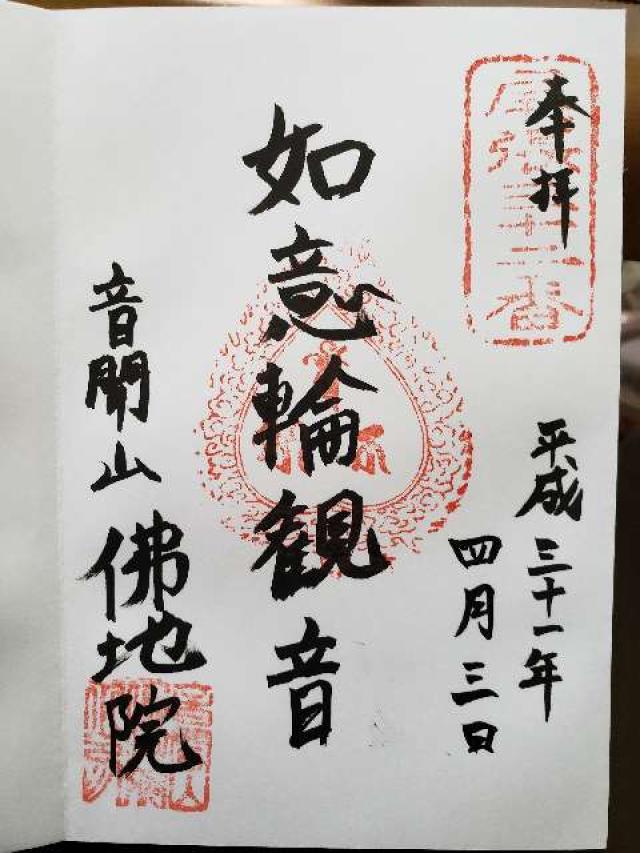 奉拝
尾張三十三番
平成三十一年
四月三日
如意輪観音
音聞山佛地院